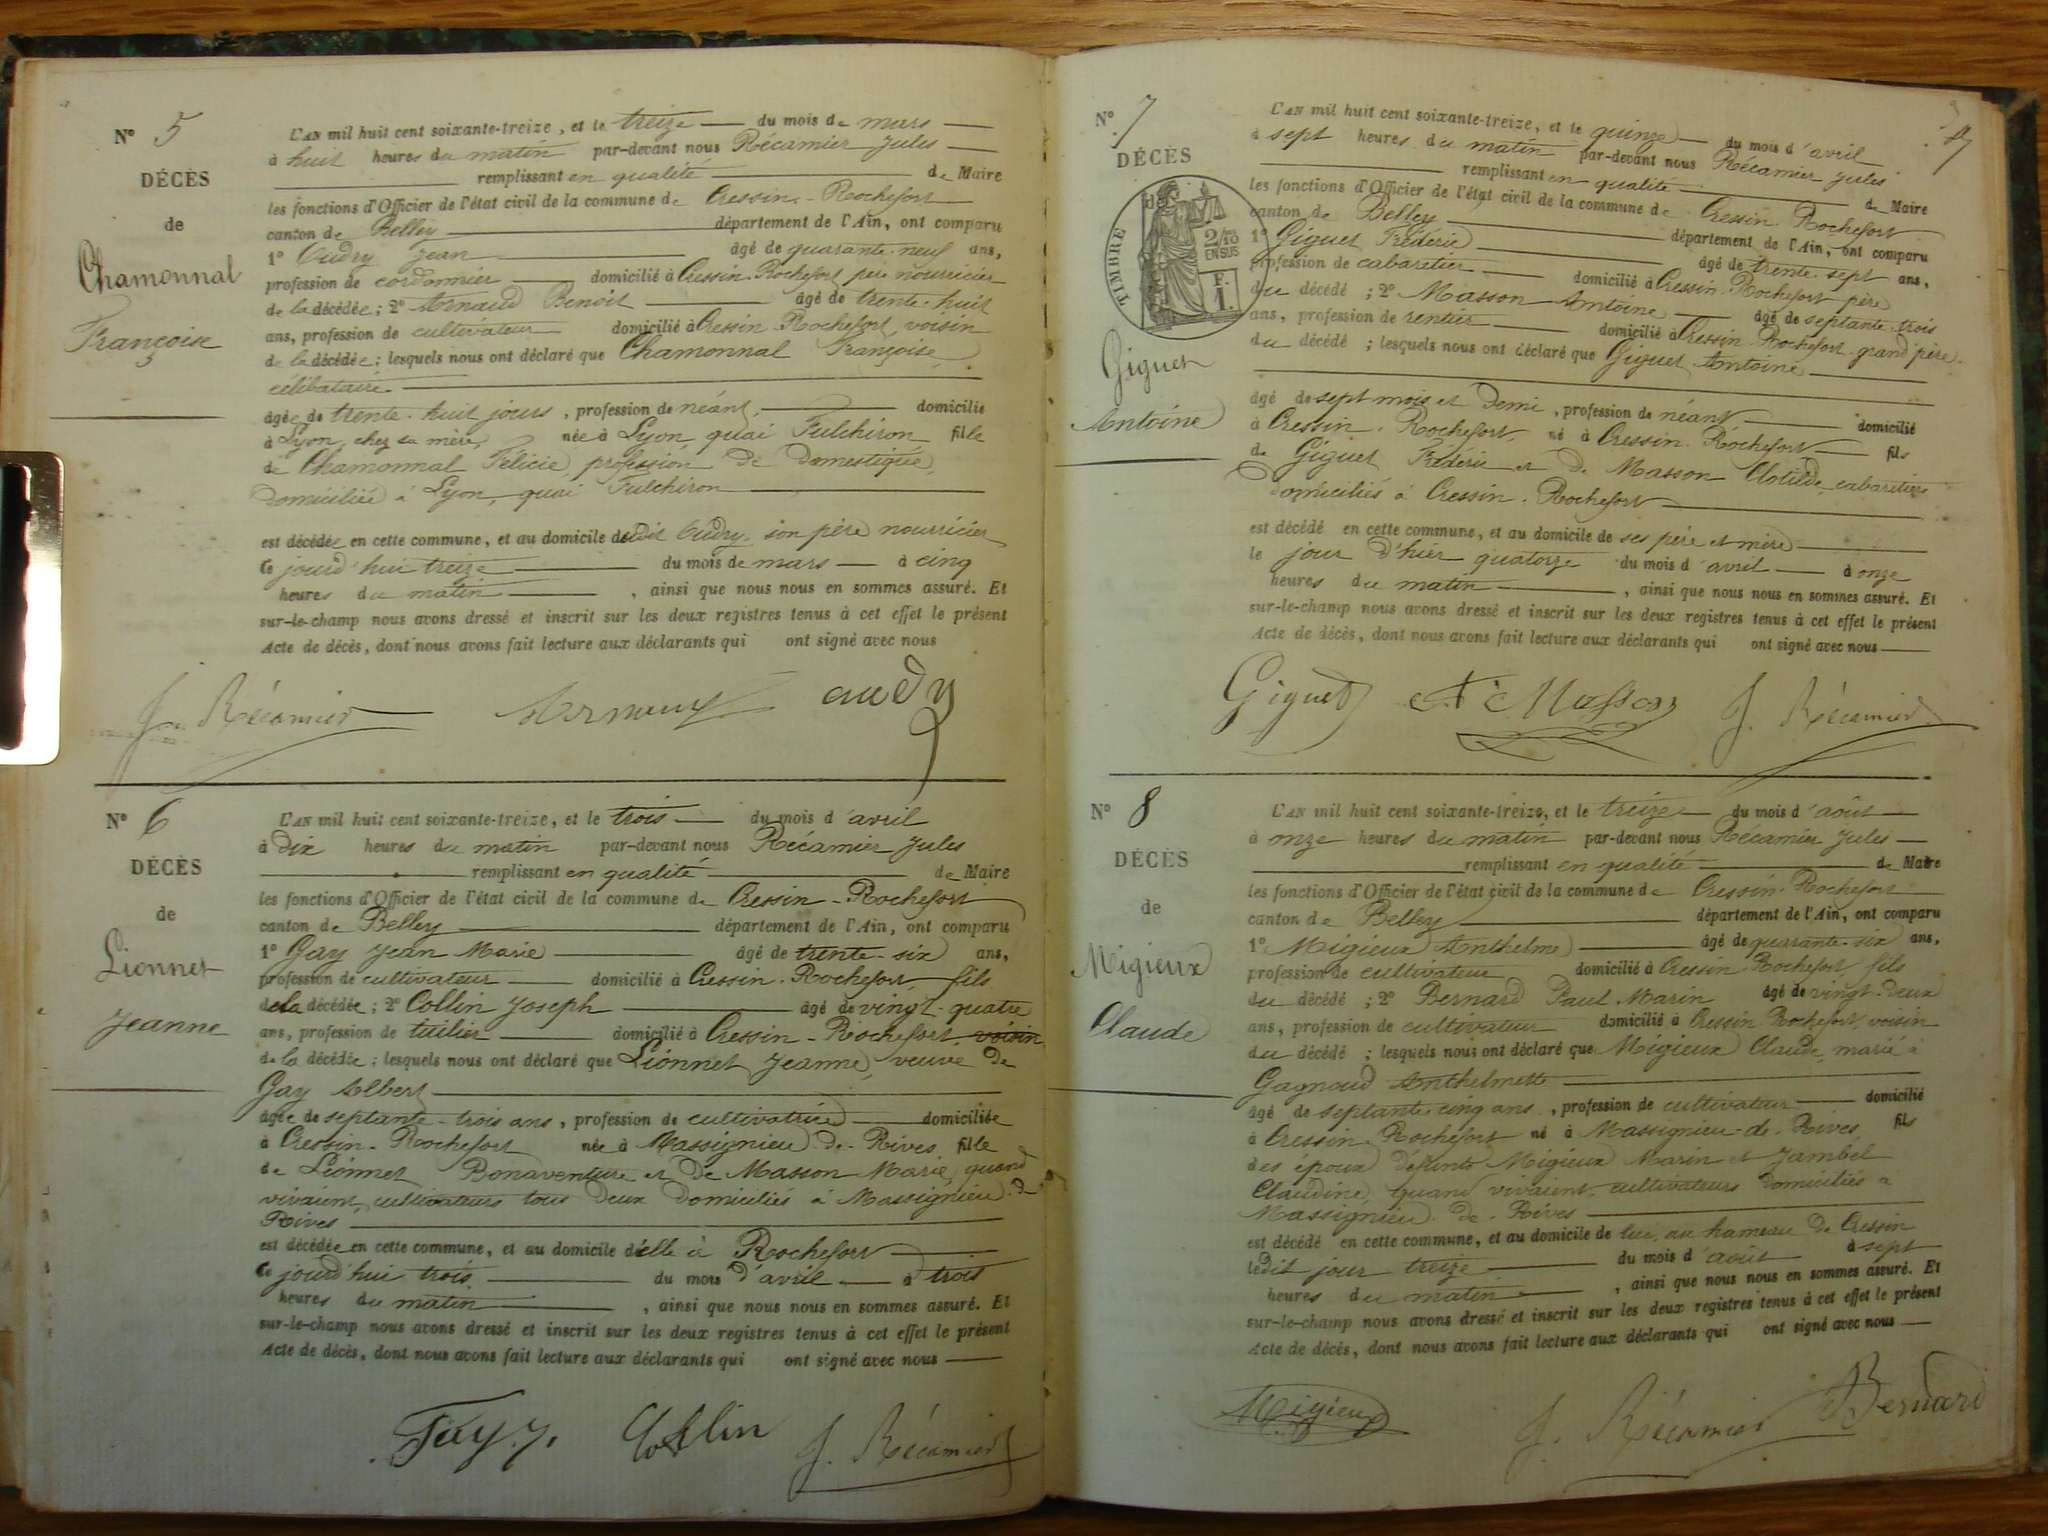 Nº 5
DÉCÈS
de
Chamonnal
Françoise
L'AN mil huit cent soixante-treize, et le treize du mois de mars
à huit heures du matin par-devant nous Récamier Jules
remplissant en qualité de Maire
les fonctions d'Officier de l'état civil de la commune de Cressin-Rochefort
canton de Belley département de l'Ain, ont comparu
1º Oudry Jean âgé de quarante-neuf ans,
profession de cordonnier domicilié à Cressin-Rochefort père nourricier
de la décédée; 2º Arnaud Benoit âgé de trente-huit
ans, profession de cultivateur domicilié à Cressin Rochefort, voisin
de la décédée; lesquels nous ont déclaré que Chamonnal Françoise,
célibataire
âgée de trente-huit jours, profession de néant, domicilié
à Lyon, chez sa mère, née à Lyon, quai Fulchiron fille
de Chamonnal Félicie, profession de domestique,
domiciliée à Lyon, quai Fulchiron
est décédée en cette commune, et au domicile dudit Oudry, son père nourricier,
ce jourd'hui treize du mois de mars à cinq
heures du matin, ainsi que nous nous en sommes assuré. Et
sur-le-champ nous avons dressé et inscrit sur les deux registres tenus à cet effet le présent
Acte de décès, dont nous avons fait lecture aux déclarants qui ont signé avec nous
J. Récamier Arnaud audry
Nº 6
DÉCÈS
de
Lionnet
Jeanne
L'AN mil huit cent soixante-treize, et le trois du mois d'avril
à dix heures du matin par-devant nous Récamier Jules
remplissant en qualité de Maire
les fonctions d'Officier de l'état civil de la commune de Cressin-Rochefort
canton de Belley département de l'Ain, ont comparu
1º Gay Jean Marie âgé de trente-six ans,
profession de cultivateur domicilié à Cressin-Rochefort, fils
de la décédée; 2º Collin Joseph âgé de vingt-quatre
ans, profession de tuilier domicilié à Cressin-Rochefort, voisin
de la décédée; lesquels nous ont déclaré que Lionnet Jeanne, veuve de
Gay Albert
âgée de septante-trois ans, profession de cultivatrice domiciliée
à Cressin-Rochefort née à Massignieu-de-Rives fille
de Lionnet Bonaventure et de Masson Marie, quand
vivaient, cultivateurs tous deux domiciliés à Massignieu-de
Rives
est décédée en cette commune, et au domicile d'elle à Rochefort
ce jourd'hui trois du mois d'avril à trois
heures du matin, ainsi que nous nous en sommes assuré. Et
sur-le-champ nous avons dressé et inscrit sur les deux registres tenus à cet effet le présent
Acte de décès, dont nous avons fait lecture aux déclarants qui ont signé avec nous
Gay J. Collin J. Récamier
Nº 7
DÉCÈS
TIMBRE
2/10
EN SUS
F.
1.
Giguet
Antoine
L'AN mil huit cent soixante-treize, et le quinze du mois d'avril
à sept heures du matin par-devant nous Récamier Jules
remplissant en qualité de Maire
les fonctions d'Officier de l'état civil de la commune de Cressin-Rochefort
canton de Belley département de l'Ain, ont comparu
1º Giguet Fréderic âgé de trente-sept ans,
profession de cabaretier domicilié à Cressin-Rochefort père
du décédé; 2º Masson Antoine âgé de septante-trois
ans, profession de rentier domicilié à Cressin-Rochefort grand père
du décédé; lesquels nous ont déclaré que Giguet Antoine
âgé de sept mois et demi, profession de néant domicilié
à Cressin-Rochefort, né à Cressin-Rochefort, fils
de Giguet Fréderic et de Masson Clotilde, cabaretiers
domiciliés à Cressin-Rochefort
est décédé en cette commune, et au domicile de ses père et mère
le jour d'hier quatorze du mois d'avril à onze
heures du matin, ainsi que nous nous en sommes assuré. Et
sur-le-champ nous avons dressé et inscrit sur les deux registres tenus à cet effet le présent
Acte de décès, dont nous avons fait lecture aux déclarants qui ont signé avec nous
Giguet Masson J. Récamier
Nº 8
DÉCÈS
de
Migieux
Claude
L'AN mil huit cent soixante-treize, et le treize du mois d'août
à onze heures du matin par-devant nous Récamier Jules
remplissant en qualité de Maire
les fonctions d'Officier de l'état civil de la commune de Cressin-Rochefort
canton de Belley département de l'Ain, ont comparu
1º Migieux Anthelme âgé de quarante-six ans,
profession de cultivateur domicilié à Cressin-Rochefort, fils
du décédé; 2º Bernard Paul Marin âgé de vingt-deux
ans, profession de cultivateur domicilié à Cressin-Rochefort, voisin
du décédé; lesquels nous ont déclaré que Migieux Claude, marié à
Gagnoud Anthelmette
âgé de septante cinq ans, profession de cultivateur domicilié
à Cressin-Rochefort né à Massignieu-de-Rives fils
des époux défunts Migieux Marin et Jambel
Claudine, quand vivaient, cultivateurs domiciliés à
Massignieu-de-Rives
est décédé en cette commune, et au domicile de lui, au hameau de Cressin
ledit jour treize du mois d'août à sept
heures du matin, ainsi que nous nous en sommes assuré. Et
sur-le-champ nous avons dressé et inscrit sur les deux registres tenus à cet effet le présent
Acte de décès, dont nous avons fait lecture aux déclarants qui ont signé avec nous
Migieux J. Récamier Bernard